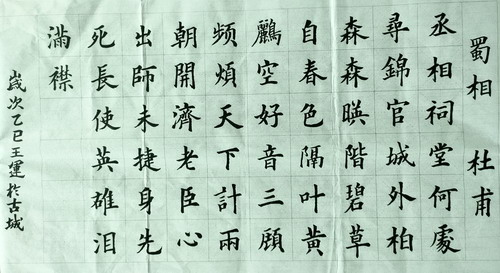 蜀相 杜甫
丞相祠堂何處
尋錦官城外柏
森森暎階碧草
自春色隔叶黄
鸝空好音三顧
頻煩天下計兩
朝開濟老臣心
出師未捷身先
死長使英雄淚
滿襟
嵗次乙巳王運扵古城